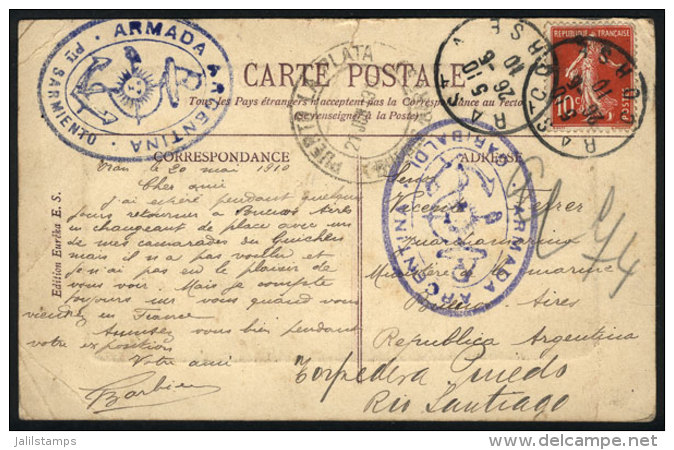 ARMADA ARGENTINA
Pto SARMIENTO
CARTE POSTALE
Tous les Pays étrangers n'acceptent pas la Correspondance au recto
(se renseigner à la Poste)
PUERTO LA PLATA
21 JUN
REPUBLIQUE FRANÇAISE
10c
POSTES
CORRESPONDANCE
ADRESSE
ARMADA ARGENTINA
GARIBALDI
Edition Eurêka E. S.
Oran le 20 mai 1910
Cher ami
J'ai espéré pendant quelques
jours retourner à Buenos Aires
en changeant de place avec un
de mes camarades du Guichen
mais il n'a pas voulu et
je n'ai pas eu le plaisir de
vous voir. Mais je compte
toujours sur vous quand vous
viendrez en France
Amusez vous bien pendant
votre exposition
Votre ami
Barbier
Ferrer
Marine
Buenos Aires
Republica Argentina
Torpedera Pinedo
Rio Santiago
jalilstamps
www.delcampe.net